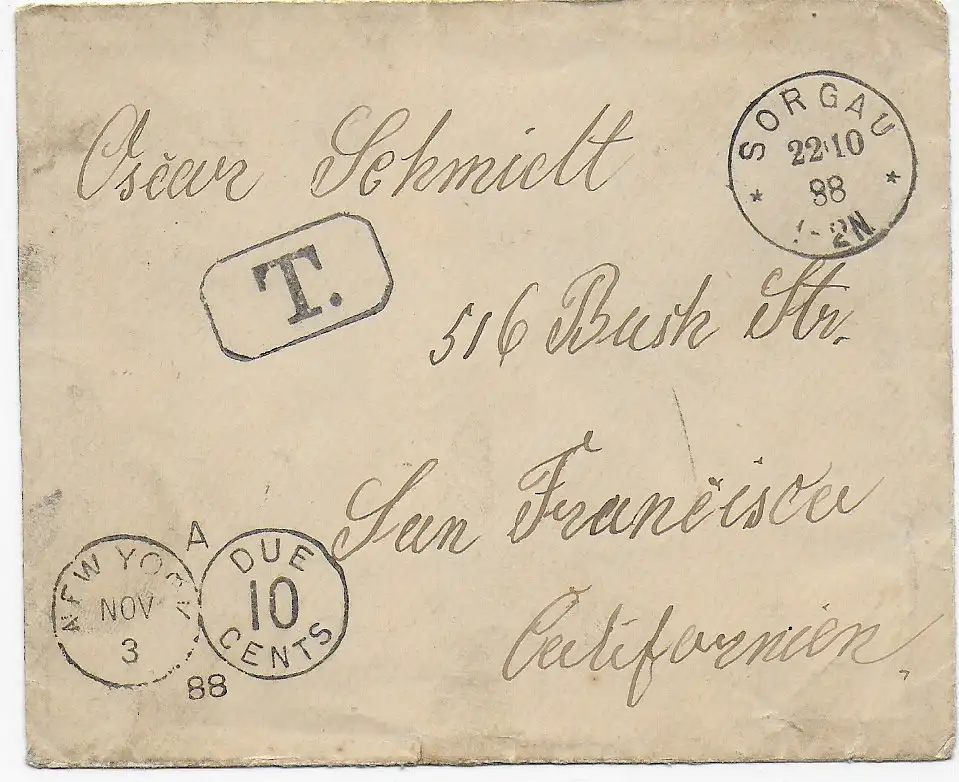 SORGAU
22 10
88
1-2N
Oscar Schmidt
T.
516 Bush Str.
San Francisco
Californien,
NEW YORK
NOV
3
88
A
DUE
10
CENTS